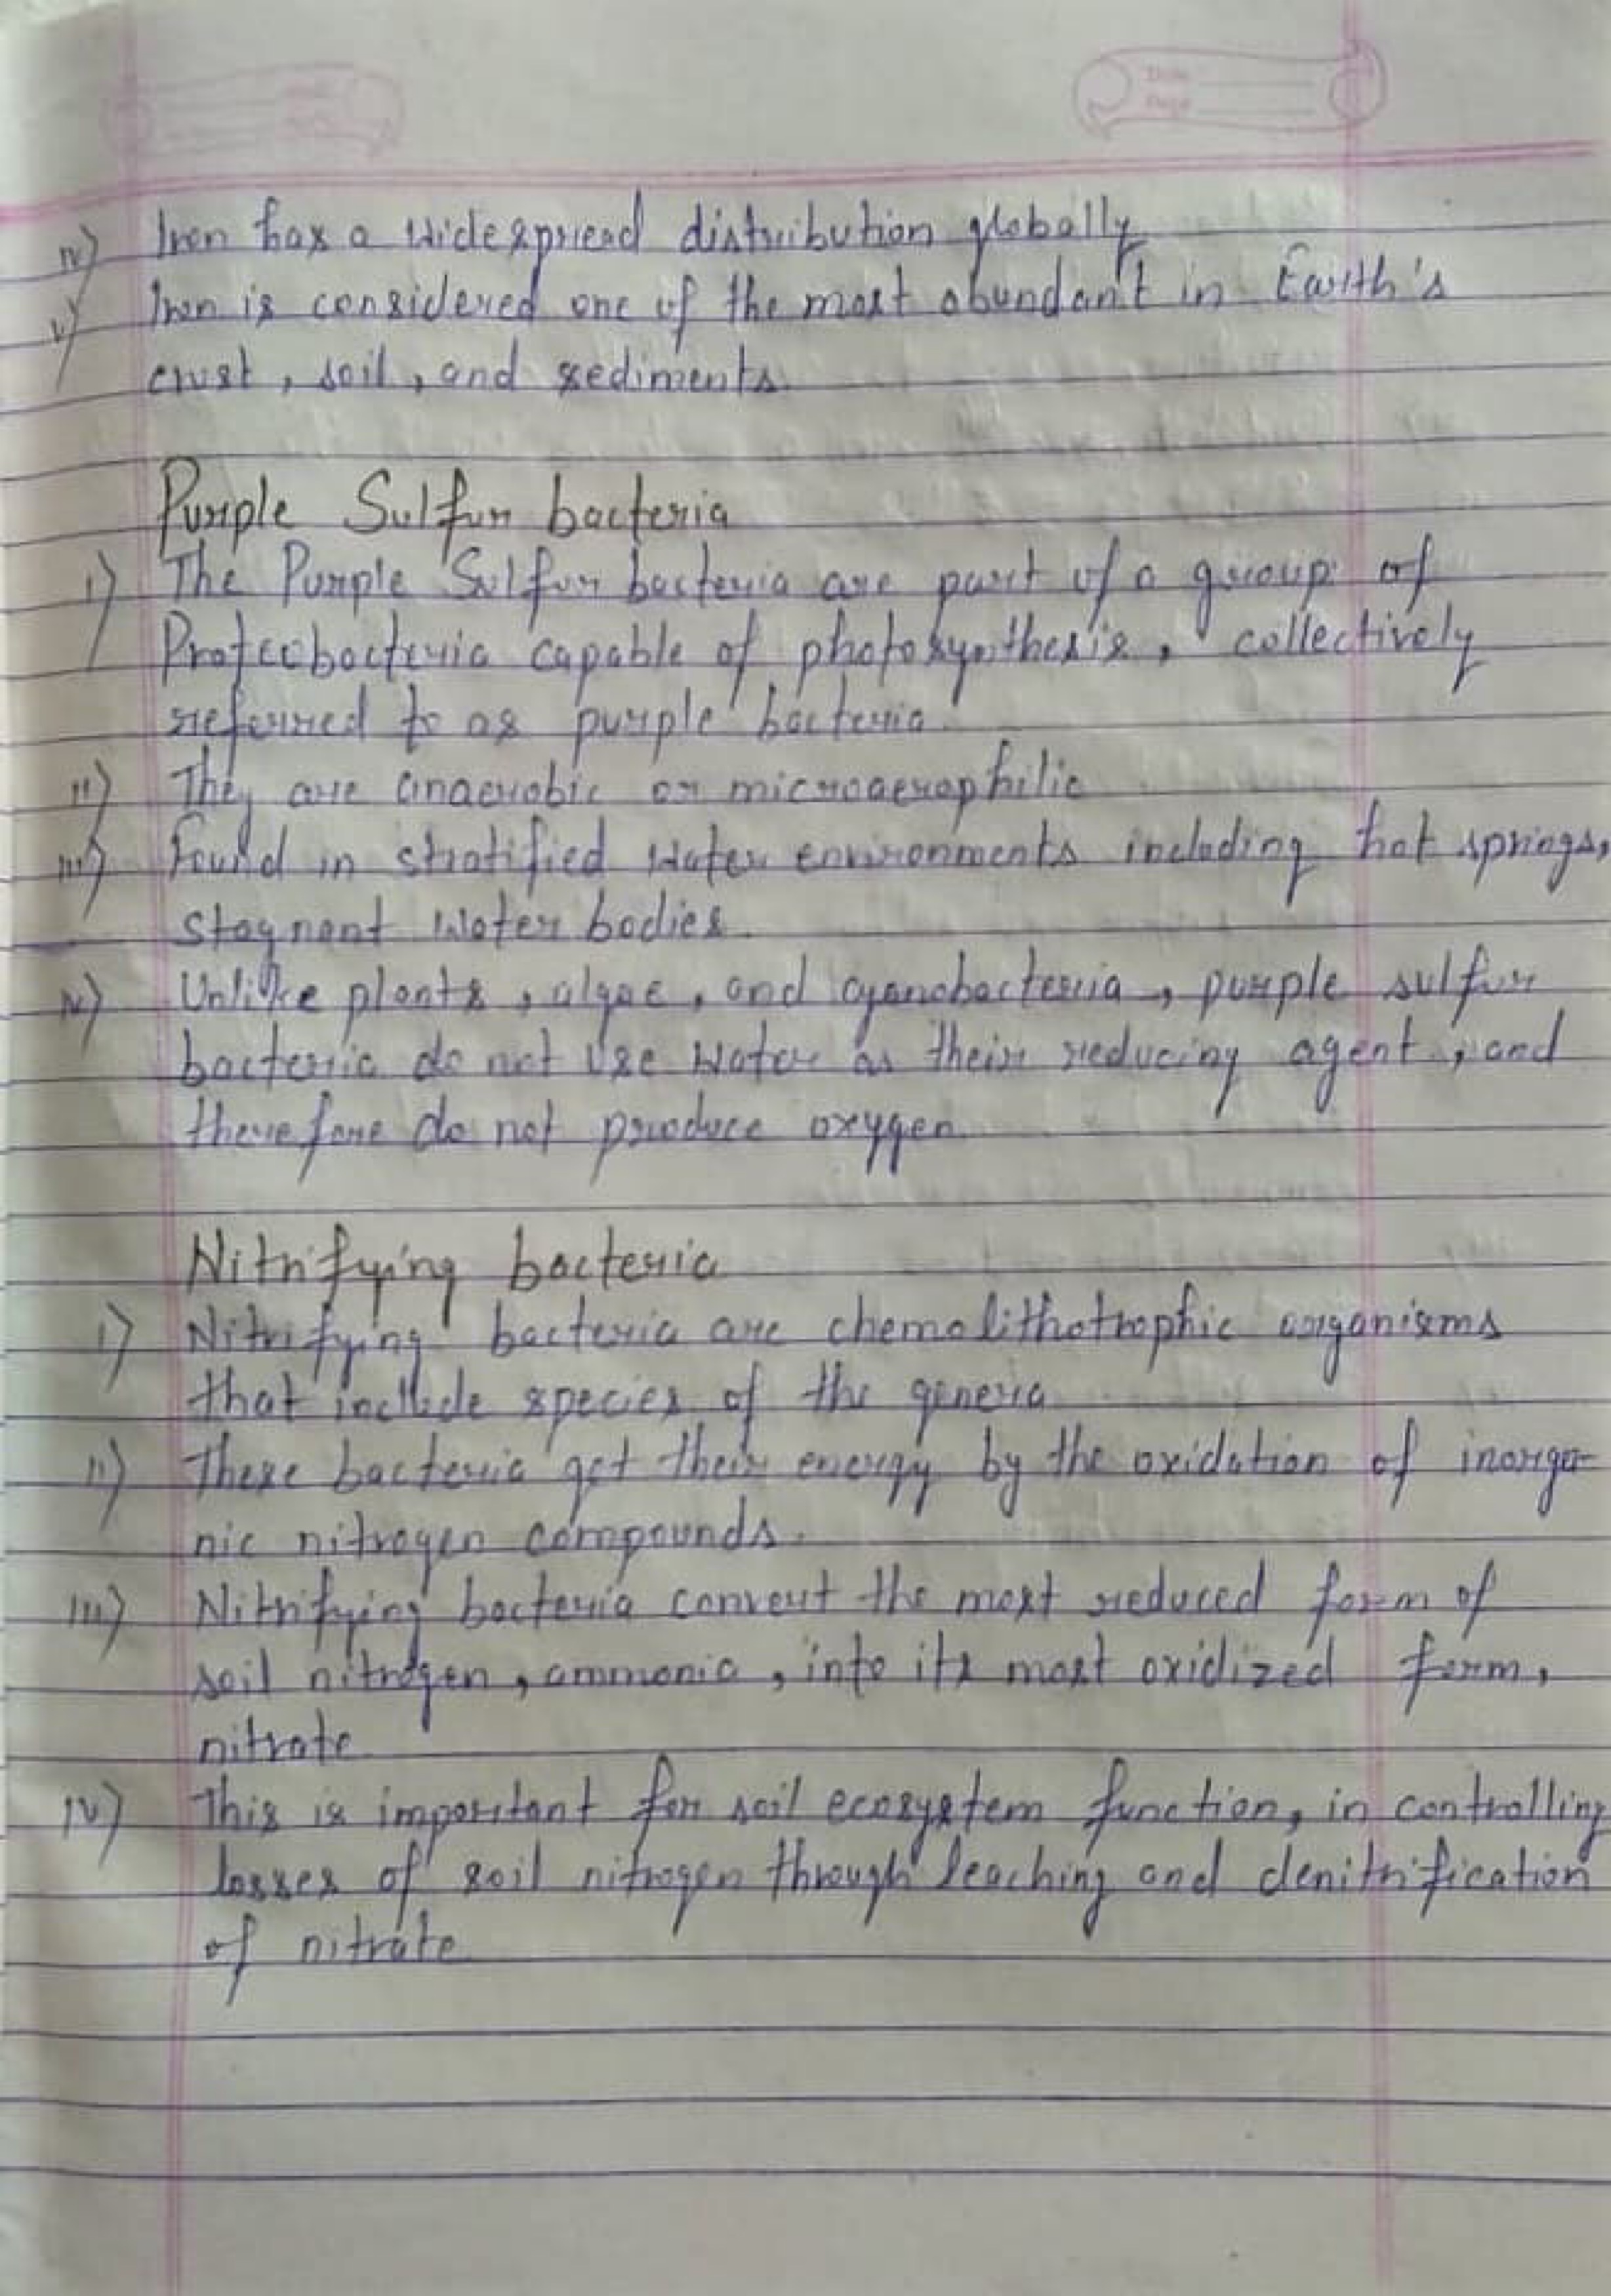 iv) Iron has a widespread distribution globally
v) Iron is considered one of the most abundant in Earth's
crust, soil, and sediments.
Purple Sulfur bacteria
i) The Purple Sulfur bacteria are part of a group of
Proteobacteria capable of photosynthesis, collectively
referred to as purple bacteria.
ii) They are anaerobic or microaerophilic
iii) Found in stratified water environments including hot springs,
stagnant water bodies.
iv) Unlike plants, algae, and cyanobacteria, purple sulfur
bacteria do not use water as their reducing agent, and
therefore do not produce oxygen.
Nitrifying bacteria
i) Nitrifying bacteria are chemolithotrophic organisms
that include species of the genera
ii) These bacteria get their energy by the oxidation of inorga-
nic nitrogen compounds.
iii) Nitrifying bacteria convert the most reduced form of
soil nitrogen, ammonia, into its most oxidized form,
nitrate
iv) This is important for soil ecosystem function, in controlling
losses of soil nitrogen through leaching and denitrification
of nitrate.